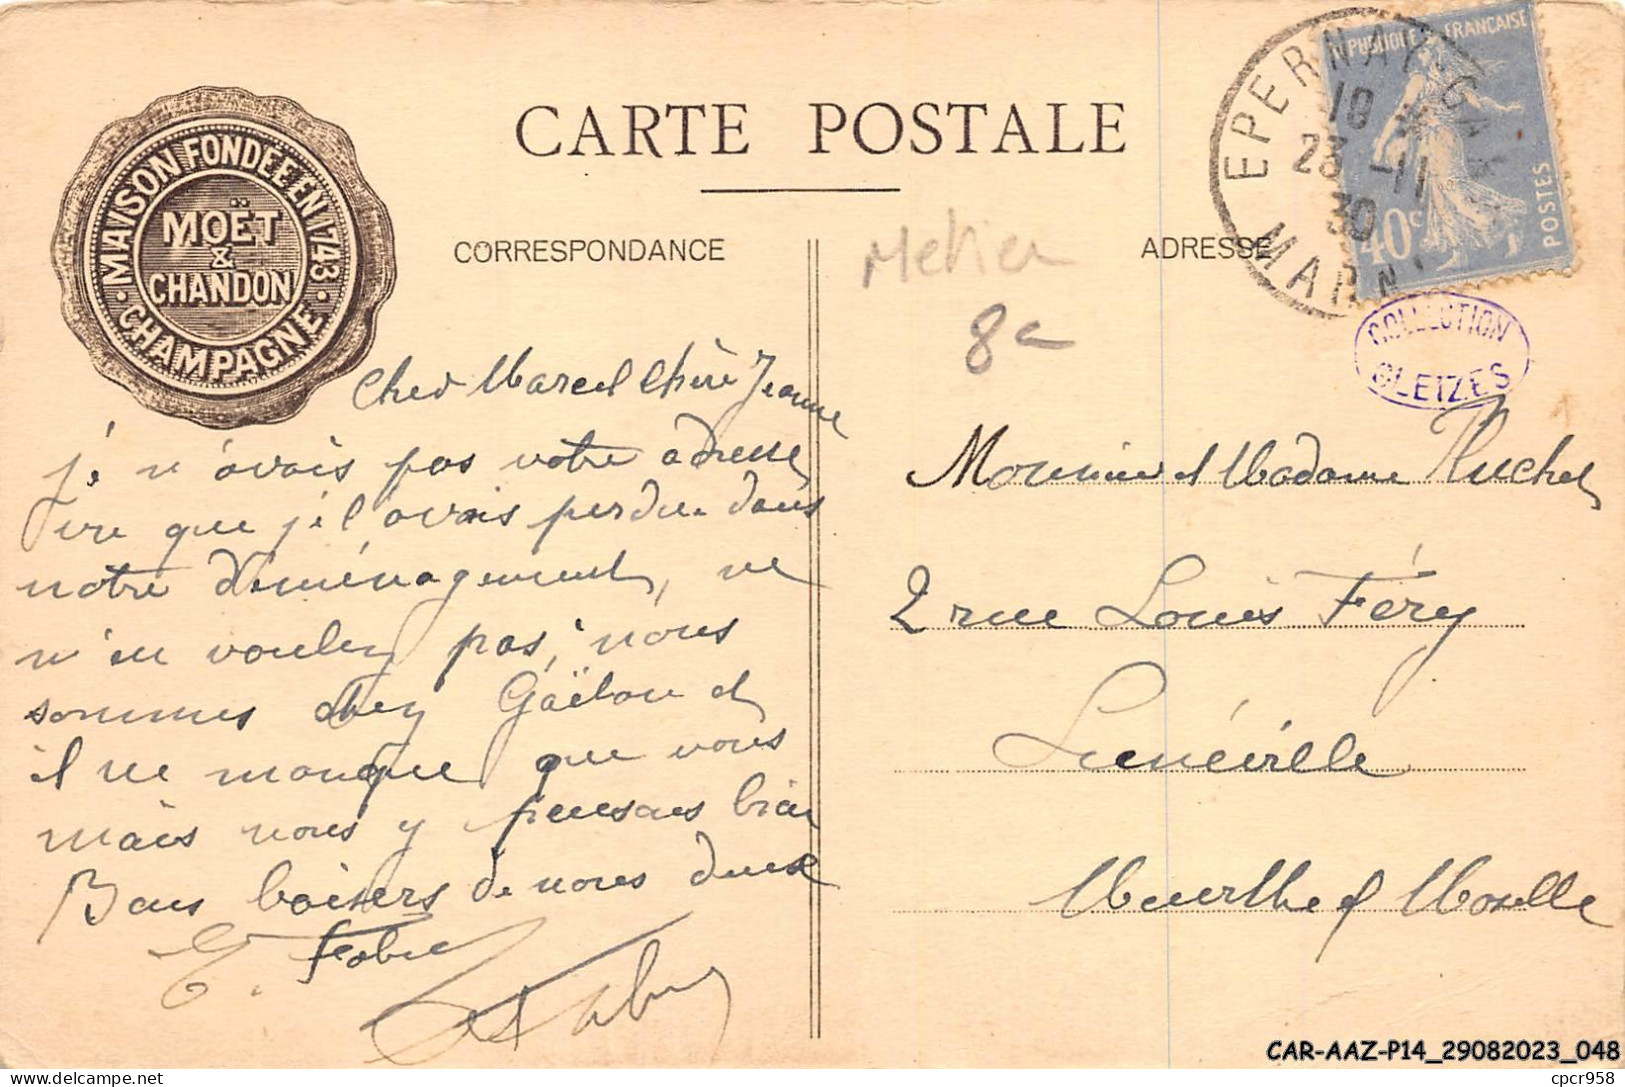 MAISON FONDÉE EN 1743
MOËT
&
CHANDON
CHAMPAGNE
CARTE POSTALE
CORRESPONDANCE
ADRESSE
REPUBLIQUE FRANÇAISE
POSTES
40c
EPERNAY-GARE
18
23 -11
30
MARNE
COLLECTION
GLEIZES
Metier
8€
Cher Marcel Chère Jeanne
je n'avais pas votre adresse
que je l'avais perdue dans
notre déménagement, ne
n'en voulez pas, nous
sommes chez Gaëtan et
il ne manque que vous
mais nous y pensons bien
Bons baisers de nous deux
E. Fabre
Fabre
Monsieur et Madame Ruchel
2 rue Louis Féry
Lunéville
Meurthe et Moselle
CAR-AAZ-P14_29082023_048
cpcr958